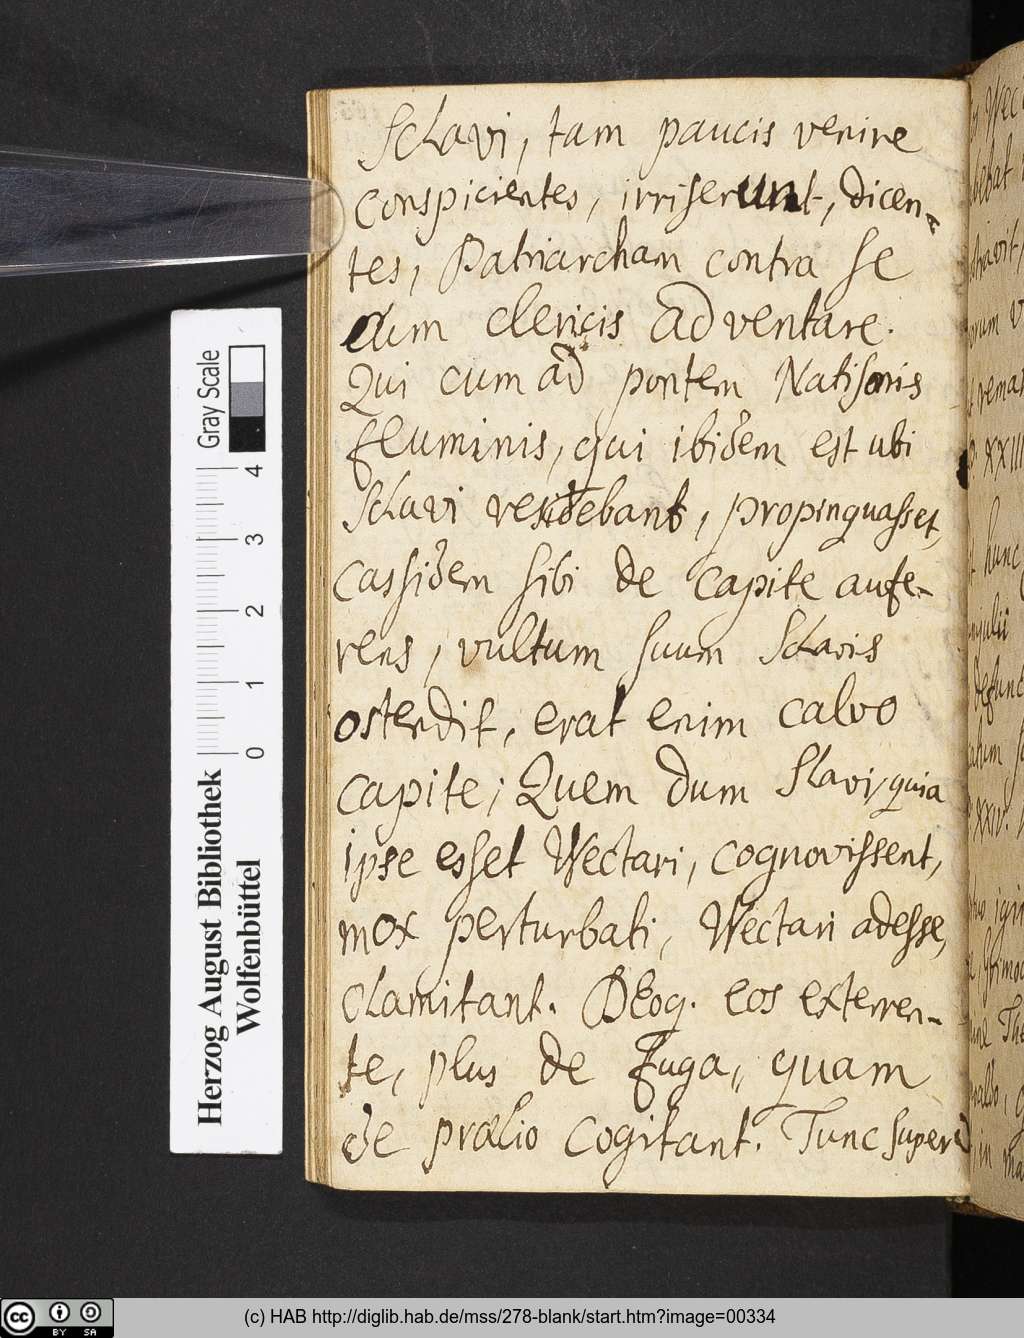 Sclavi, tam paucis venire
conspicientes, irriserunt, dicen-
tes, Patriarcham contra se
cum clericis adventare.
Qui cum ad pontem Natisonis
fluminis, qui ibidem est ubi
Sclavi residebant, propinquasset,
cassidem sibi de capite aufe-
rens, vultum suum Sclavis
ostendit, erat enim calvo
capite; Quem dum Slavi, quia
ipse esset Wectari, cognovissent,
mox perturbati, Wectari adesse,
clamitant. Deoq. eos exterren-
te, plus de fuga, quam
de prælio cogitant. Tunc super
Gray Scale
4
3
2
1
0
Herzog August Bibliothek
Wolfenbüttel
cc BY SA
(c) HAB http://diglib.hab.de/mss/278-blank/start.htm?image=00334